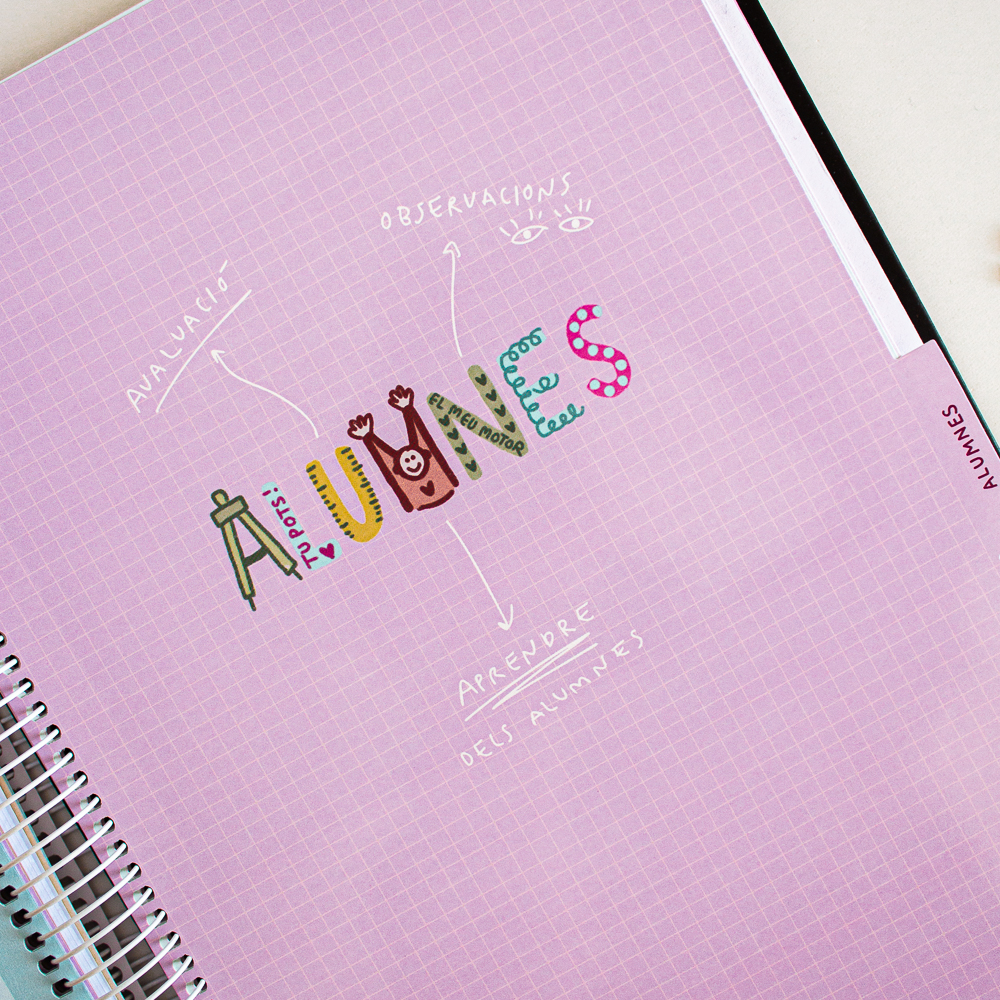 OBSERVACIONS
AVALUACIÓ
ALUMNES
TU POTS!
EL MEU MOTOR
APRENDRE
DELS ALUMNES
ALUMNES